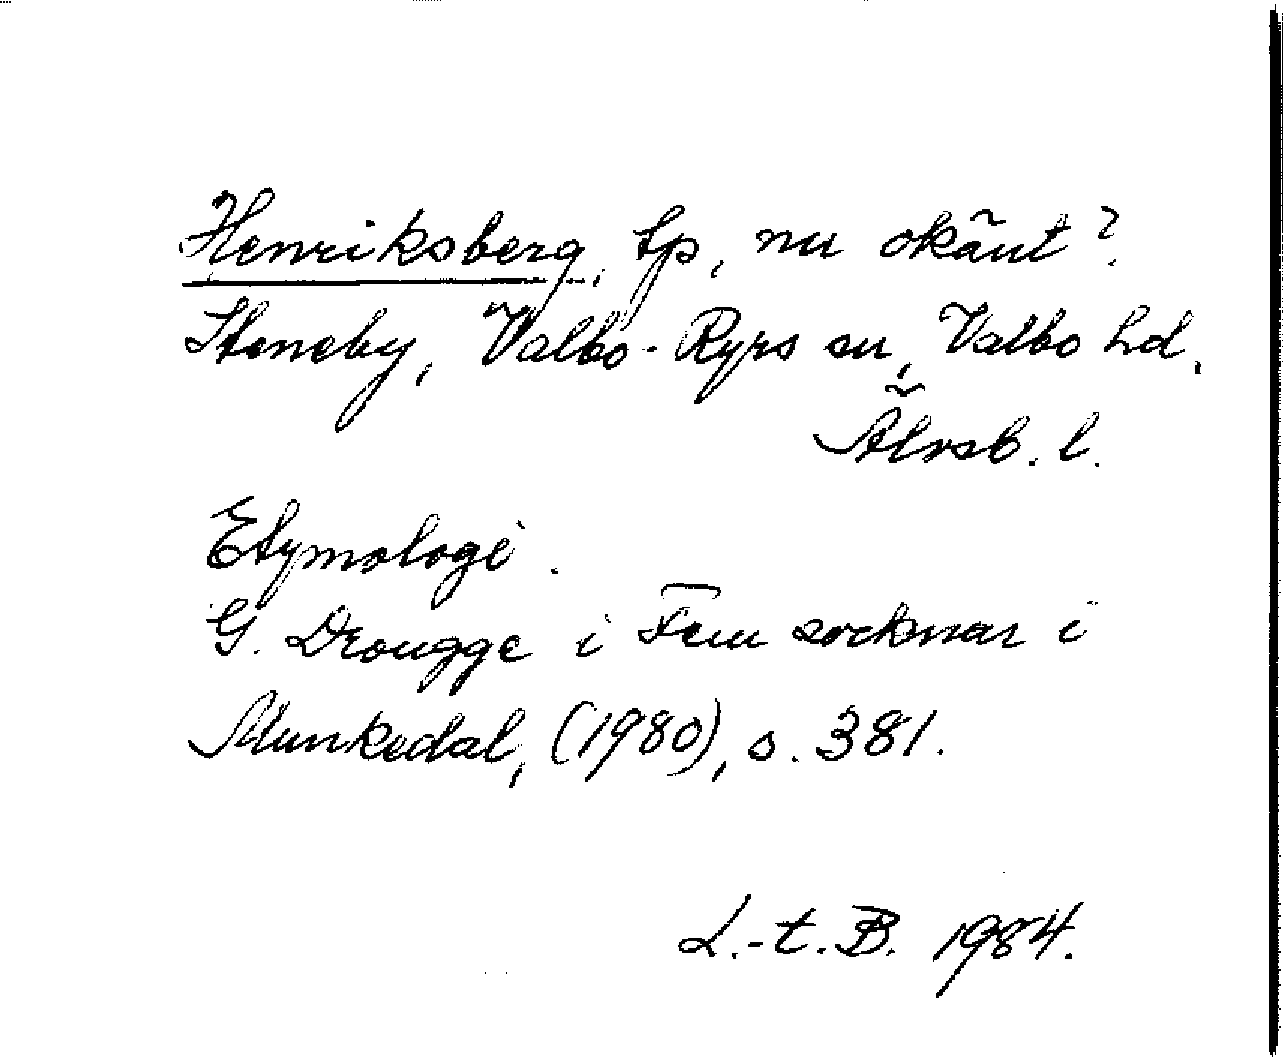 Henriksberg, tp, nu okänt?
Steneby, Valbo-Ryrs sn, Valbo hd,
Älvsb. l.
Etymologi.
G. Drougge i Fem socknar i
Munkedal, (1980), s. 381.
L.-t. B. 1984.